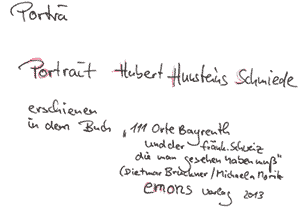 Porträ
Portrait Hubert Hunsteins Schmiede
erschienen
in dem Buch „111 Orte Bayreuth
und der fränk. Schweiz
die man gesehen haben muß"
(Dietmar Bruckner / Michaela Moritz
emons verlag 2013